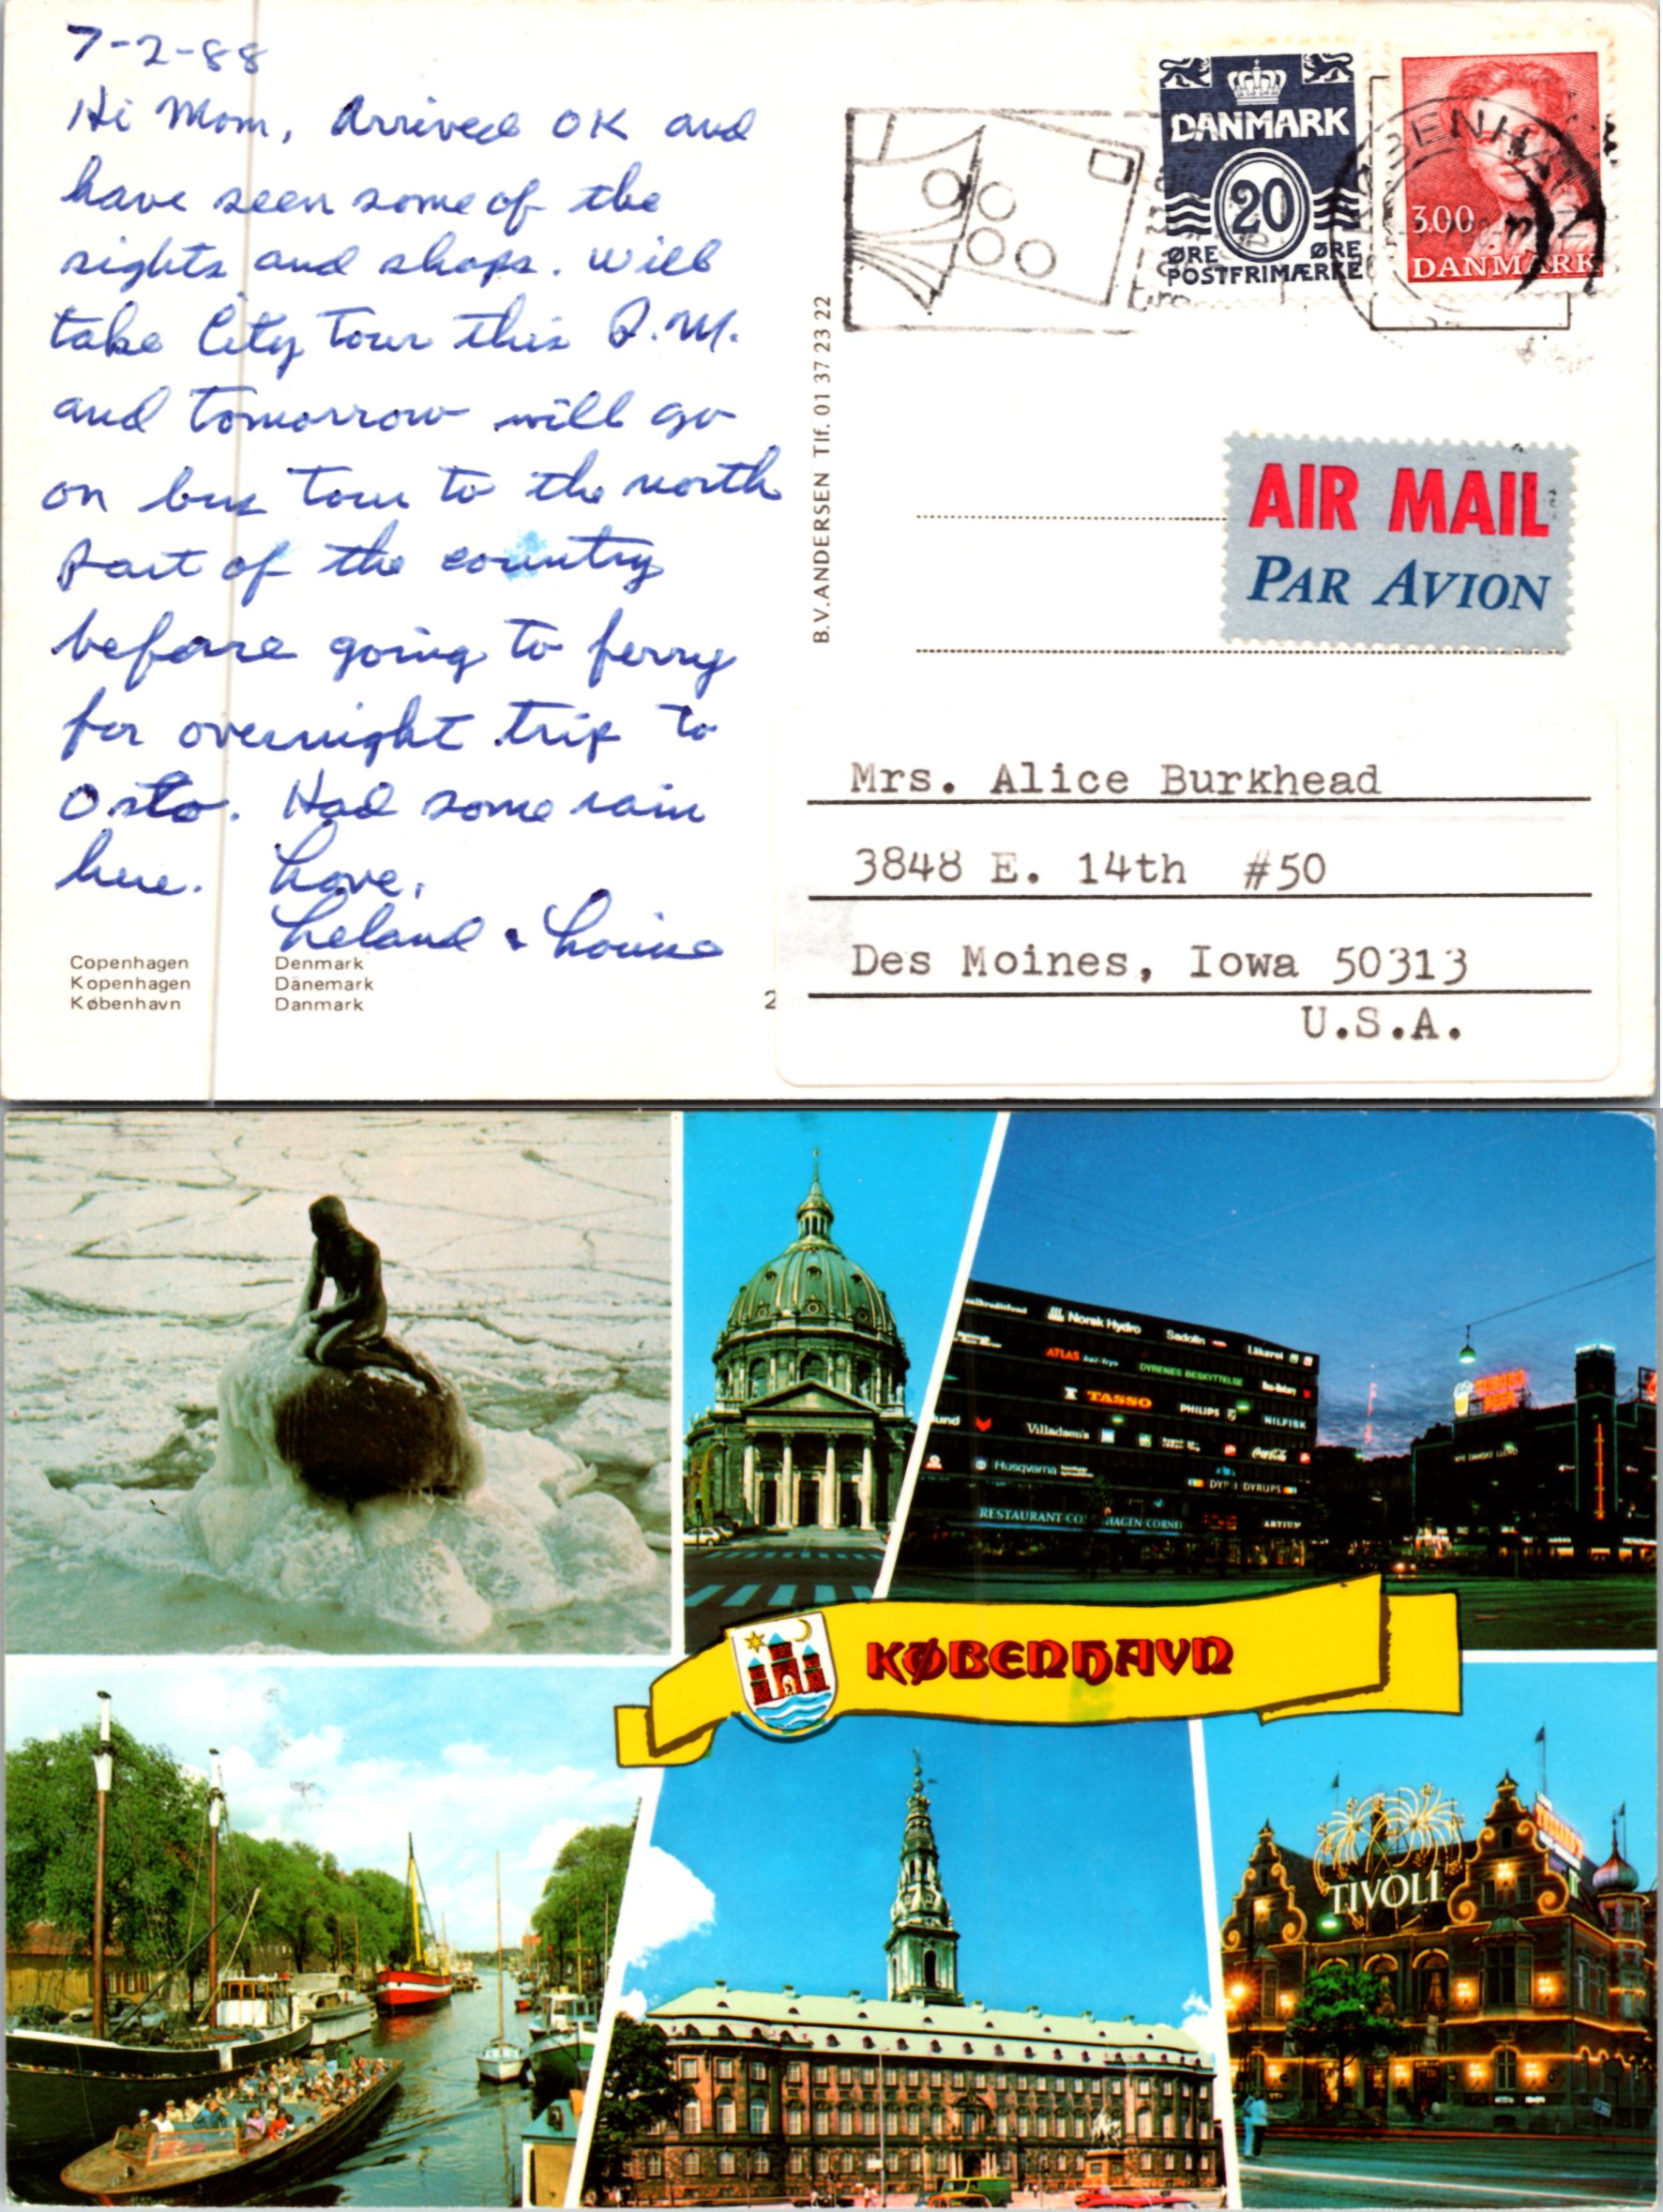 7-2-88
Hi Mom, Arrived OK and
have seen some of the
sights and shops. Will
take City Tour this P.M.
and tomorrow will go
on bus tour to the north
part of the country
before going to ferry
for overnight trip to
Oslo. Had some rain
here. Love,
Leland & Louise
Copenhagen Denmark
Kopenhagen Dänemark
København Danmark
2
B.V. ANDERSEN Tlf. 01 37 23 22
DANMARK
20
ØRE ØRE
POSTFRIMÆRKE
3.00
DANMARK
AIR MAIL
PAR AVION
Mrs. Alice Burkhead
3848 E. 14th #50
Des Moines, Iowa 50313
U.S.A.
Norsk Hydro Sadolin Läkerol
ATLAS DYRENES BESKYTTELSE
TASSO PHILIPS NILFISK
Villadsen's Coca-Cola
Husqvarna
DYRUPS
RESTAURANT CO HAGEN CORNE
KØBENHAVN
TIVOLI